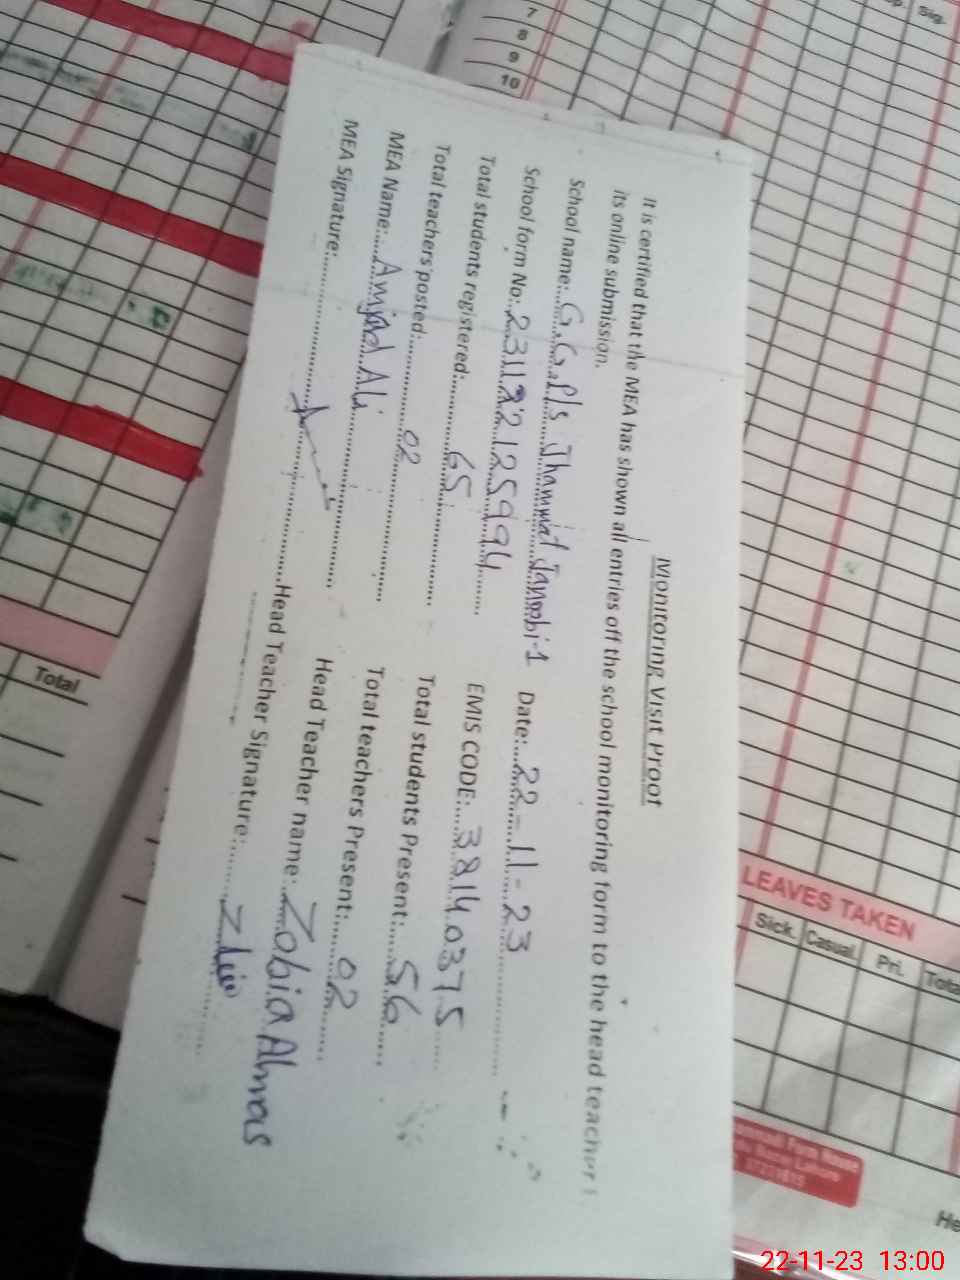 Monitoring Visit Proof
It is certified that the MEA has shown all entries off the school monitoring form to the head teacher
its online submission.
School name: G.G.P/S Jhammat Janoobi-1 Date: 22-11-23
School form No: EMIS CODE: 38140375
Total students registered: 65 Total students Present: 56
Total teachers posted: 02 Total teachers Present: 02
MEA Name: Amjad Ali Head Teacher name: Zobia
MEA Signature: Head Teacher Signature:
7
8
9
10
Sig.
Total
LEAVES TAKEN
Sick. Casual. Pri. Tota
He
22-11-23 13:00